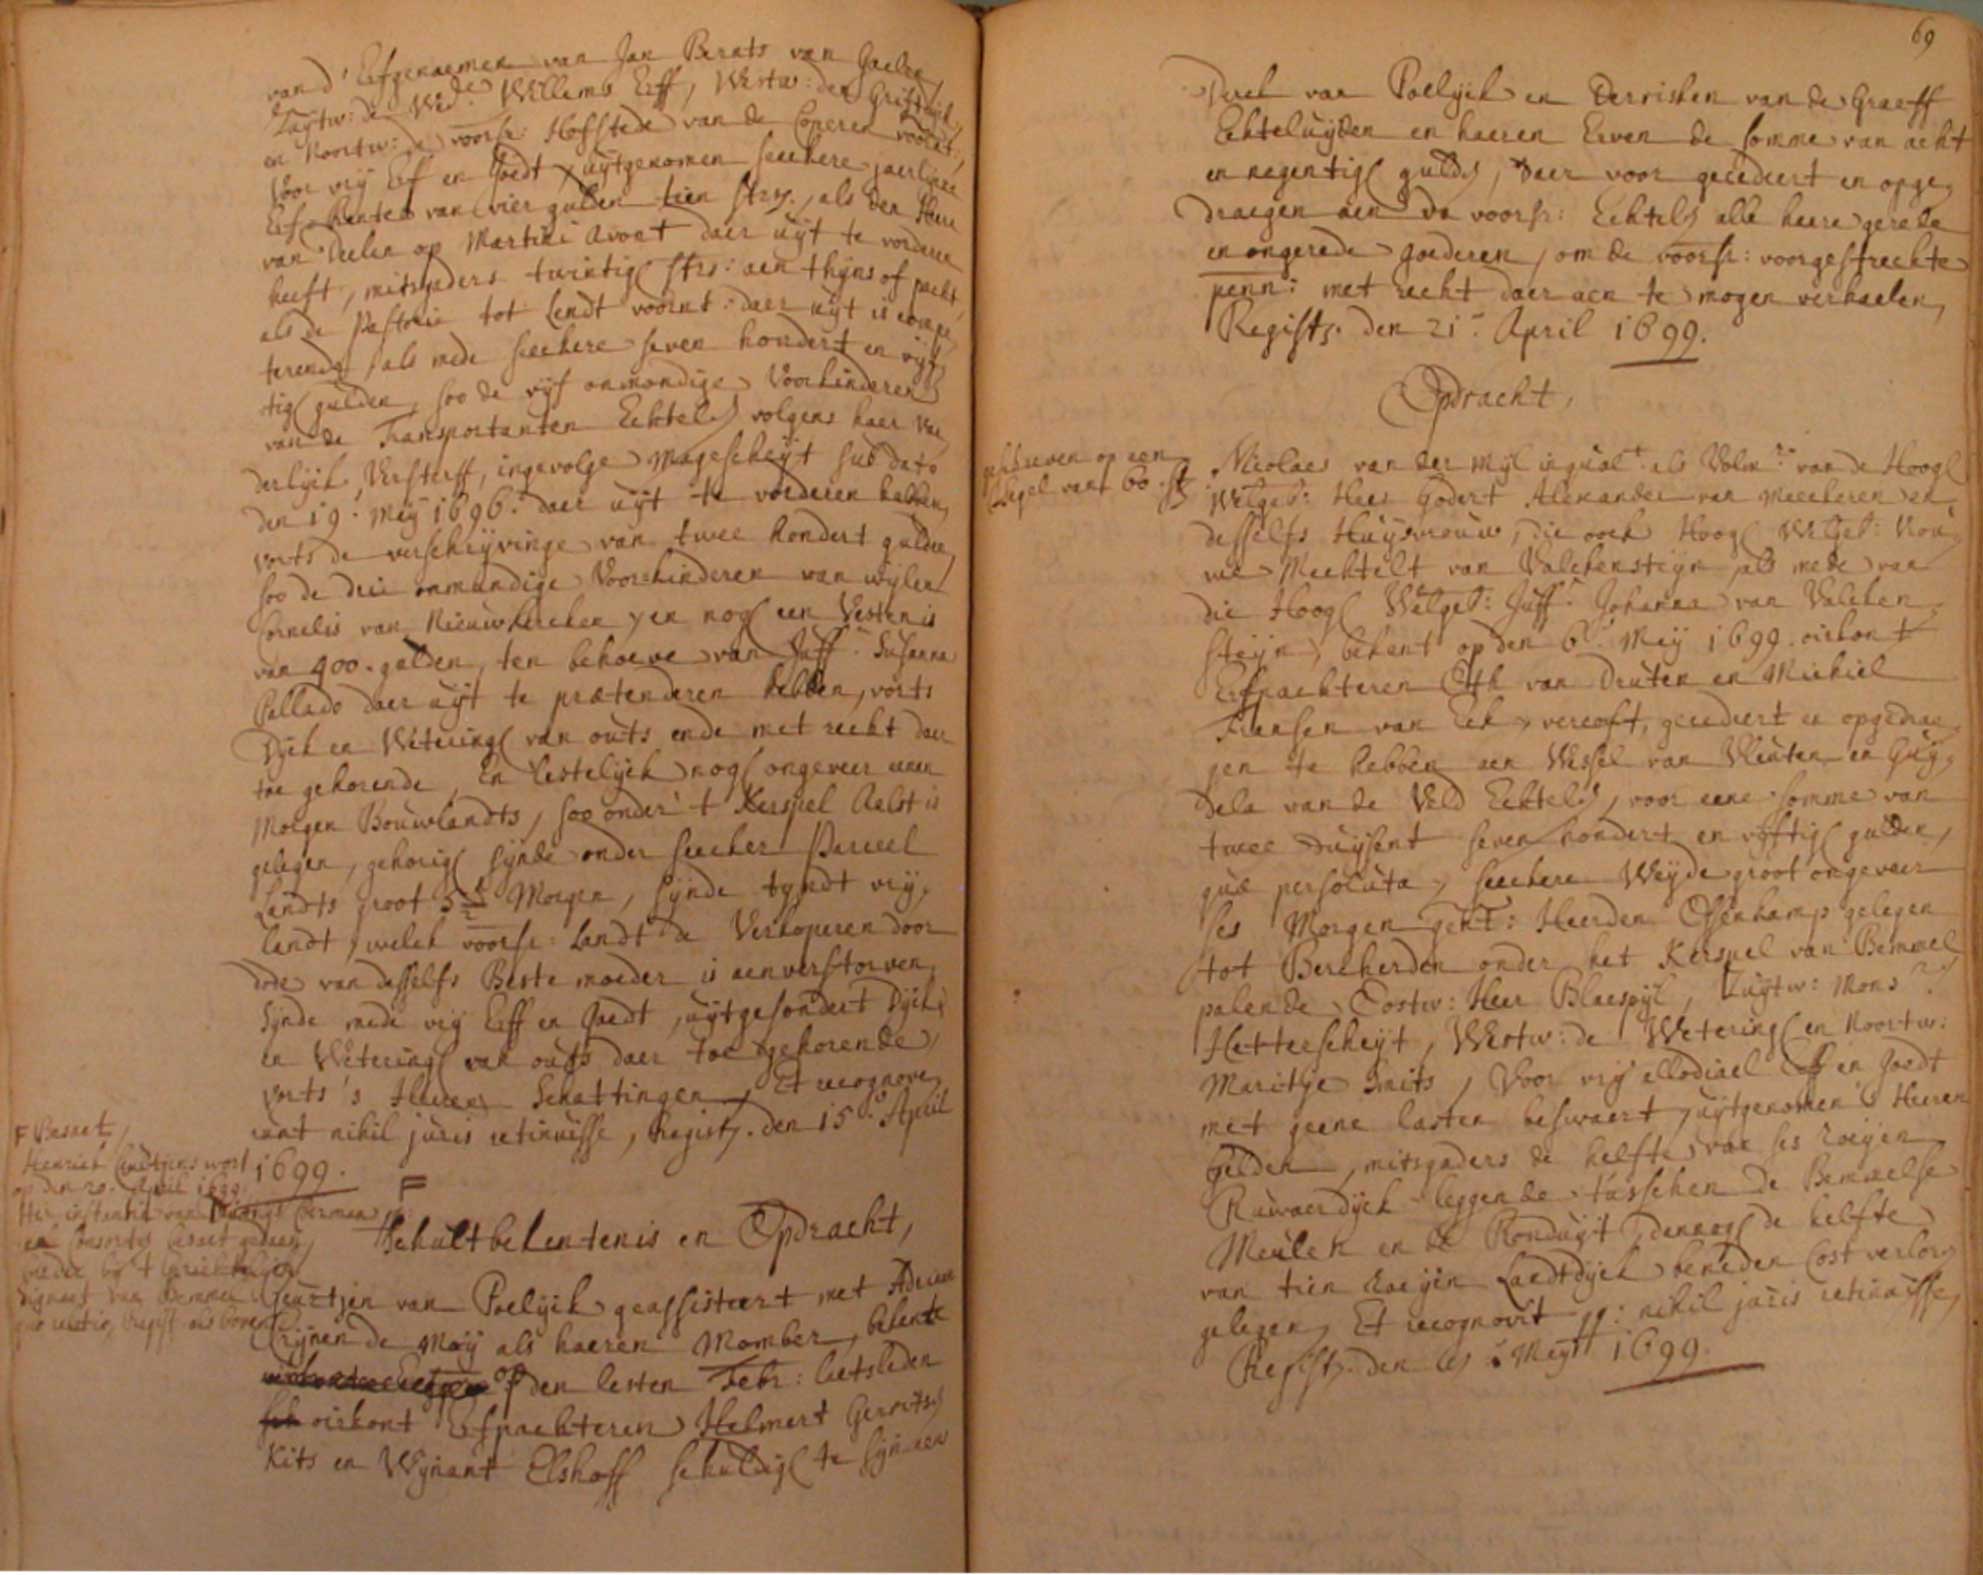 van d' Erfgenaemen van Jan Bernts van Haelen,
Zuytw: de Wed.e Willems Erff, Westw: den Grift dijck
en Noortw: de voorsr: Hofstede van de Coperen voornt,
Voor vrij Erf en Goedt, uytgenomen seeckere jaerlixe
Erf Rente van vier gulden tien strs., als den Heere
van Deelen op Martini avont daer uyt te vorderen
heeft, mitsgaders twintigh strs: aen thijns of pacht
als de Pastorie tot Lendt voornt: daer uyt is compe
terende, als mede seeckere seven hondert en vijf
tigh gulden, soo de vijf onmondige Voorkinderen
van de Transportanten Echtel: volgens haer Va
derlijck Versterff, ingevolge Magescheyt sub dato
den 19. Meij 1696. daer uyt te vorderen hebben,
vorts de verschrijvinge van twee hondert gulden,
soo de drie onmundige Voorkinderen van wijlen
Cornelis van Nieuwkercken, en nogh een Vestenis
van 400. gulden, ten behoeve van Juffr. Susanna
Pallado daer uyt te prætenderen hebben, vorts
Dijck en Weteringh van outs ende met recht daer
toe gehorende, En lestelijck nogh ongeveer eenen
Morgen Bouwlandts, soo onder 't Kerspel Aelst is
gelegen, gehorigh sijnde onder seecker Parceel
Landts groot 5½ Morgen, sijnde tyndt vrij
landt, welck voorsr: Landt de Verkoperen door
dode van desselfs Beste moeder is aenverstorven
Sijnde mede vrij Erff en Goedt, uytgesondert Dijck
en Weteringh van outs daer toe gehorende,
vorts 's Heeren Schattingen, Et recognove
runt nihil juris retinuisse, Registr. den 15.' April
1699.
F Besaet,
Henrick Coentjens wort
op den 20. April 1699.
Ter instantie van Herman
en Consorten besaet gedaen
Schultbekentenis en Opdracht,
Geurtjen van Poelijck geassisteert met Adriaen
Crijnen de Moij als haeren Momber, bekente
op den lesten Febr: laetsleden
oirkont Erfpachteren Helmert Gerrits
Kits en Wynant Elshoff schuldigh te sijn aen
69
Derck van Poelijck en Derrisken van de Graeff
Echteluijden en haeren Erven de somme van acht
en negentigh guld:, daer voor gecedeert en opge
draegen aen de voorsr: Echtel: alle haere gerede
en ongerede goederen, om de voorsr: voorgestreckte
penn: met recht daer aen te mogen verhaelen,
Registr. den 21.' April 1699.
Opdracht,
geschreven op een
Segel van 60. st
Nicolaes van der Mijl in qualt. als Volmr. van de Hoogh
Welgeb: Heer Godert Alexander van Meeckeren en
desselfs Huysvrouw, die oock Hoogh Welgeb: Vrou
we Mechtelt van Valckensteijn, als mede van
die Hoogh Welgeb: Juffr. Johanna van Valcken
steijn, bekent op den 6.' Meij 1699. oirkont
Erfpachteren Oth van Druten en Michiel
Fransen van Eck, vercoft, gecedeert en opgedrae
gen te hebben aen Wessel van Vleuten en Guij
dela van de Veld Echtel:, voor eene somme van
twee duijsent seven hondert en vijftigh gulden,
quæ persoluta, seeckere Weijde groot ongeveer
ses Morgen gent: Heerden Ossenkamp gelegen
tot Berckerden onder het Kerspel van Bemmel
palende Oostw: Heer Blaespijl, Zuytw: Monsr.
Hetterscheijt, Westw: de Weteringh en Noortw:
Maritje Smits, Voor vrij allodiael Erff en Goedt
met geene lasten beswaert, uytgenomen 's Heeren
gelden, mitsgaders de helfte van ses roeijen
Ruwaerdijck leggende tusschen de Bemmelse
Meulen en de Ronduijt, dennogh de helfte
van tien roeijen Landtdijck beneden Cost verlorn
gelegen, Et recognovit pp: nihil juris retinuisse,
Registr. den 6.' Meij 1699.